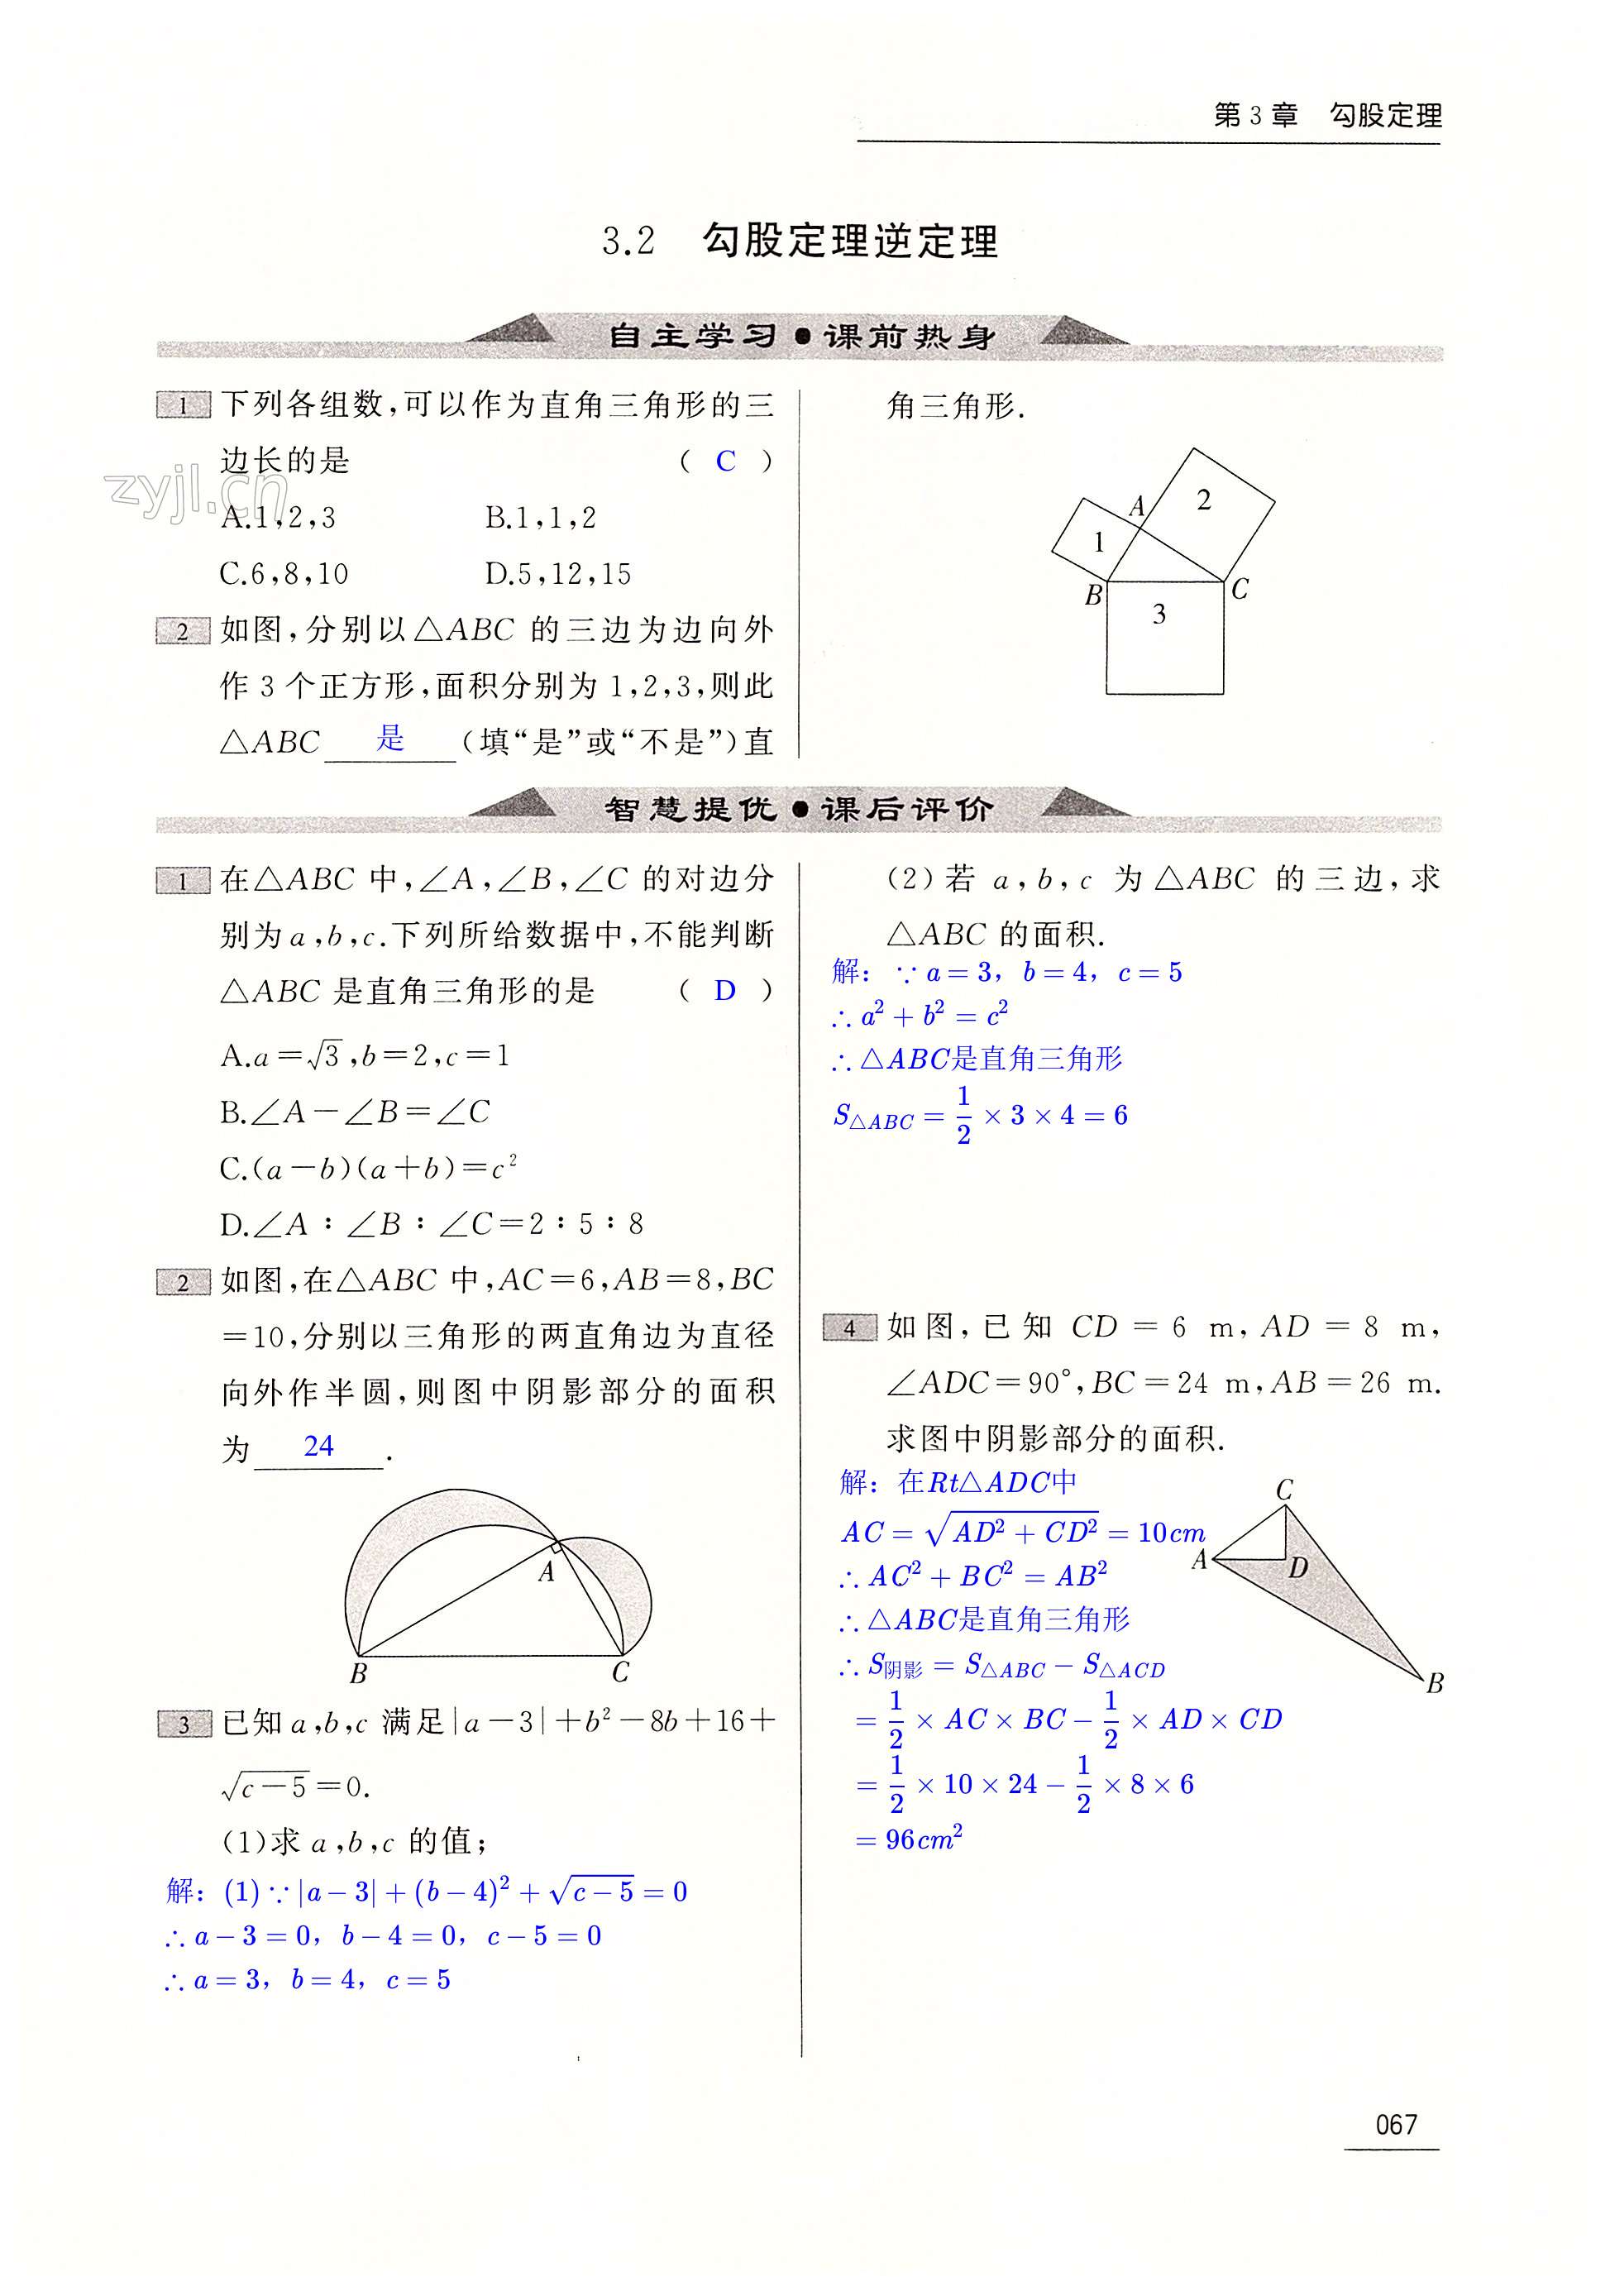 第 3 章　勾股定理
3.2　勾股定理逆定理
自主学习●课前热身
1 下列各组数,可以作为直角三角形的三
边长的是 ( C )
zyjl.cn
A.1,2,3　B.1,1,2
C.6,8,10　D.5,12,15
2 如图,分别以△ABC 的三边为边向外
作 3 个正方形,面积分别为 1,2,3,则此
△ABC 是 (填“是”或“不是”)直
角三角形.
A 2
1
B C
3
智慧提优●课后评价
1 在△ABC 中,∠A,∠B,∠C 的对边分
别为 a,b,c.下列所给数据中,不能判断
△ABC 是直角三角形的是 ( D )
A.a=√3,b=2,c=1
B.∠A-∠B=∠C
C.(a-b)(a+b)=c²
D.∠A∶∠B∶∠C=2∶5∶8
2 如图,在△ABC 中,AC=6,AB=8,BC
=10,分别以三角形的两直角边为直径
向外作半圆,则图中阴影部分的面积
为 24 .
A
B C
3 已知 a,b,c 满足|a-3|+b²-8b+16+
√(c-5)=0.
(1)求 a,b,c 的值;
解：(1)∵|a-3|+(b-4)²+√(c-5)=0
∴a-3=0，b-4=0，c-5=0
∴a=3，b=4，c=5
(2)若 a,b,c 为△ABC 的三边,求
△ABC 的面积.
解：∵a=3，b=4，c=5
∴a²+b²=c²
∴△ABC是直角三角形
S△ABC=1/2×3×4=6
4 如图,已知 CD=6 m,AD=8 m,
∠ADC=90°,BC=24 m,AB=26 m.
求图中阴影部分的面积.
解：在Rt△ADC中
AC=√(AD²+CD²)=10cm
∴AC²+BC²=AB²
∴△ABC是直角三角形
∴S阴影=S△ABC-S△ACD
=1/2×AC×BC-1/2×AD×CD
=1/2×10×24-1/2×8×6
=96cm²
C
A D
B
067